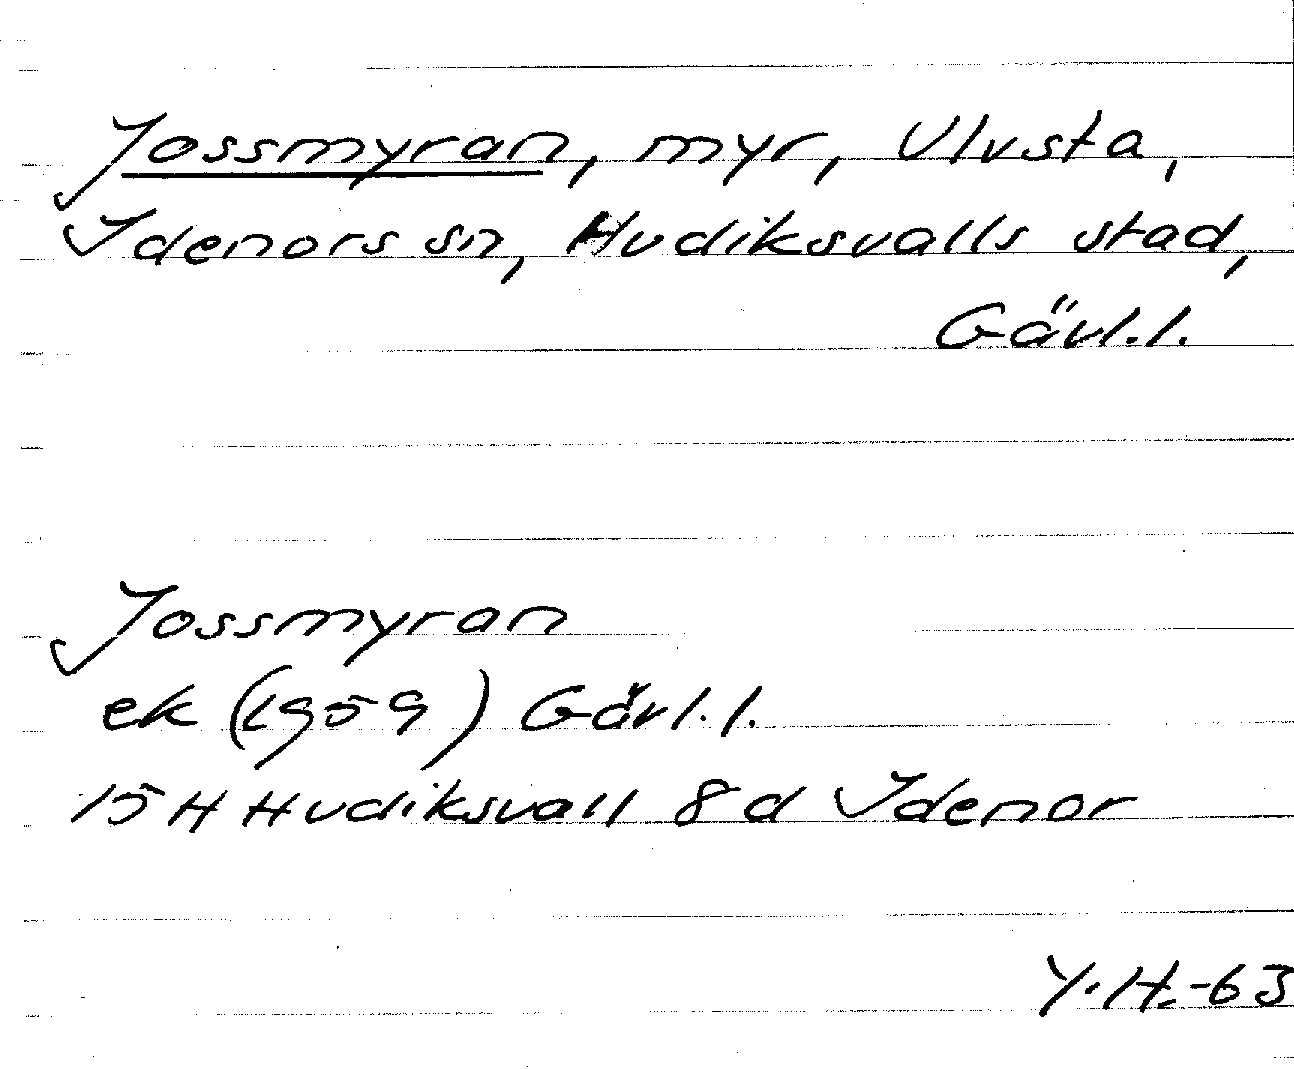 Jossmyran, myr, Ulvsta,
Idenors sn, Hudiksvalls stad,
Gävl.l.
Jossmyran
ek (1959) Gävl.l.
15H Hudiksvall 8d Idenor
Y.H.-63